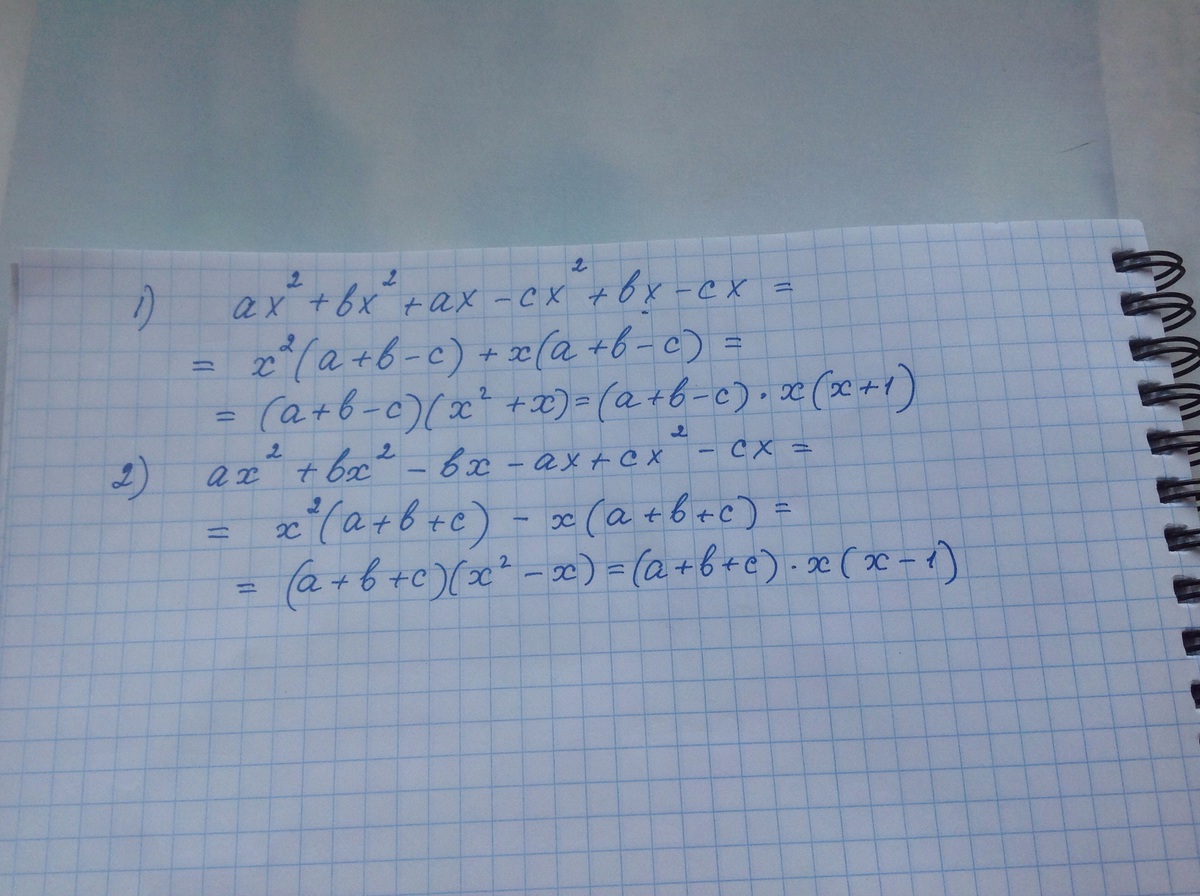 1) ax² + bx² + ax - cx² + bx - cx =
= x²(a+b-c) + x(a+b-c) =
= (a+b-c)(x²+x) = (a+b-c)·x(x+1)
2) ax² + bx² - bx - ax + cx² - cx =
= x²(a+b+c) - x(a+b+c) =
= (a+b+c)(x²-x) = (a+b+c)·x(x-1)